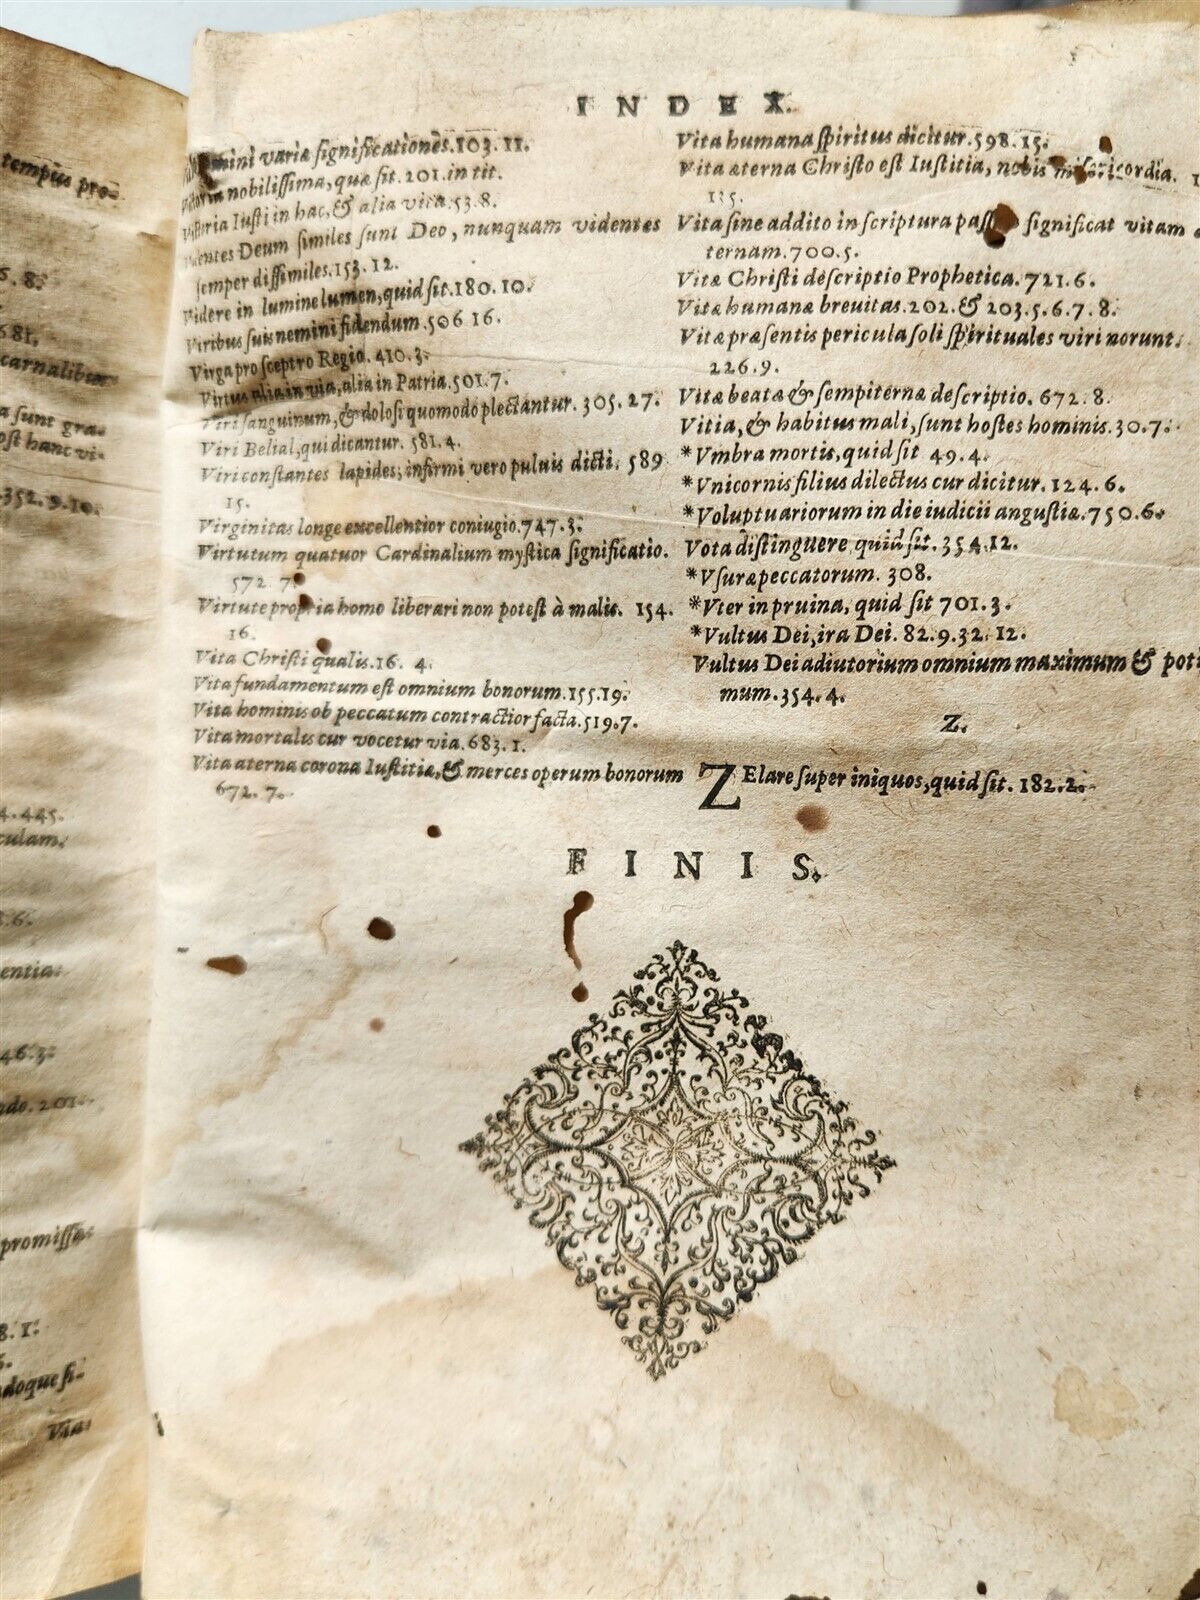 tempūs pro-
s. 8.
681.
carnalibus
a sunt gra-
ost hanc vi-
352. 9. 10.
4. 445.
culam.
8. 6.
entia.
46. 3.
ndo. 201.
promisse
8. 1.
doque si-
Via
INDEX.
mini variæ significationes. 103. 11.
nobilissima, quæ sit. 201. in tit.
Iusti in hac, & alia vita. 53. 8.
Videntes Deum similes sunt Deo, nunquam videntes
semper dissimiles. 153. 12.
Videre in lumine lumen, quid sit. 180. 10.
Viribus suis nemini fidendum. 506 16.
Virga pro sceptro Regio. 410. 3.
Virtus alia in via, alia in Patria. 501. 7.
Viri sanguinum, & dolosi quomodo plectantur. 305. 27.
Viri Belial, qui dicantur. 581. 4.
Viri constantes lapides; infirmi vero puluis dicti. 589
15.
Virginitas longe excellentior coniugio. 747. 3.
Virtutum quatuor Cardinalium mystica significatio.
572 7.
Virtute propria homo liberari non potest à malis. 154.
16.
Vita Christi qualis. 16. 4.
Vita fundamentum est omnium bonorum. 155. 19.
Vita hominis ob peccatum contractior facta. 519. 7.
Vita mortalis cur vocetur via. 683. 1.
Vita æterna corona Iustitiæ, & merces operum bonorum
672. 7.
Vita humana spiritus dicitur. 598. 15.
Vita æterna Christo est Iustitia, nobis misericordia.
Vita sine addito in scriptura significat vitam
ternam. 700. 5.
Vitæ Christi descriptio Prophetica. 721. 6.
Vitæ humanæ breuitas. 202. & 203. 5. 6. 7. 8.
Vitæ præsentis pericula soli spirituales viri norunt.
226. 9.
Vitæ beatæ & sempiternæ descriptio. 672. 8.
Vitia, & habitus mali, sunt hostes hominis. 30. 7.
*Vmbra mortis, quid sit 49. 4.
*Vnicornis filius dilectus cur dicitur. 124. 6.
*Voluptuariorum in die iudicii angustiæ. 750. 6.
Vota distinguere quid sit. 354. 12.
*Vsuræ peccatorum. 308.
*Vter in pruina, quid sit 701. 3.
*Vultus Dei, ira Dei. 82. 9. 32. 12.
Vultus Dei adiutorium omnium maximum & poti
mum. 354. 4.
Z.
ZElare super iniquos, quid sit. 182. 2.
FINIS.